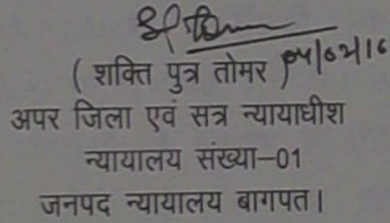 ( शक्ति पुत्र तोमर ) 04/02/16
अपर जिला एवं सत्र न्यायाधीश
न्यायालय संख्या–01
जनपद न्यायालय बागपत।